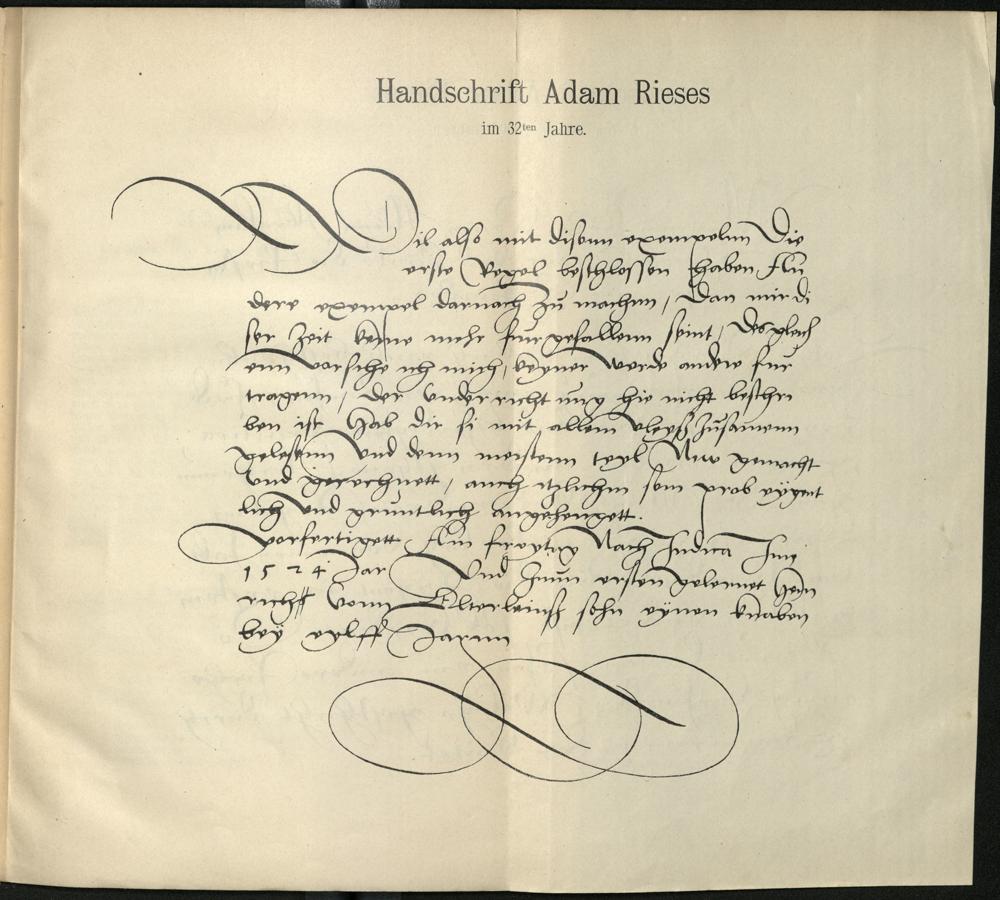 Handschrift Adam Rieses
im 32ten Jahre.
Wil also mit disenn exempelnn Die
erste Regel beschlossen haben An
dere exempel darnach zu machen, Dan mir di
ser Zeit keyne mehr furgefallenn seint, Desgleich
enn vorsihe ich mich, keyner werde andere fur
tragenn, der underricht nicht hie nicht beschri
ben ist Hab dir si mit allem vleyß zusamenn
gelesenn Und denn meistenn teyl New gemacht
Und gerechnett, auch itzlichem sein prob eygent
lich Und gruntlich angehengett.
Vorfertigett Am freytag Nach Judica Im
1524 Jar Und Inn ersten gelernet Hein
richs vonn Elterleinß sohn eynen knaben
bey eylff Jarnn